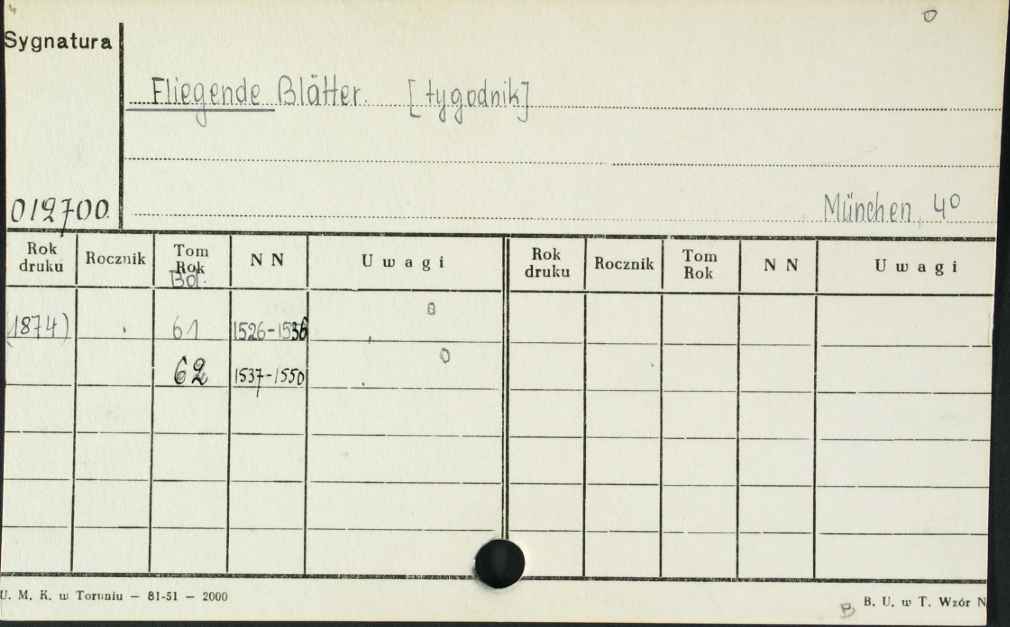 Sygnatura
Fliegende Blätter. [tygodnik]
012700
München, 4°
Rok druku Rocznik Tom Rok Bd. N N Uwagi Rok druku Rocznik Tom Rok N N Uwagi
(1874) 61 1526-1536
62 1537-1550
U. M. K. w Toruniu — 81-51 — 2000
B. U. w T. Wzór N
B